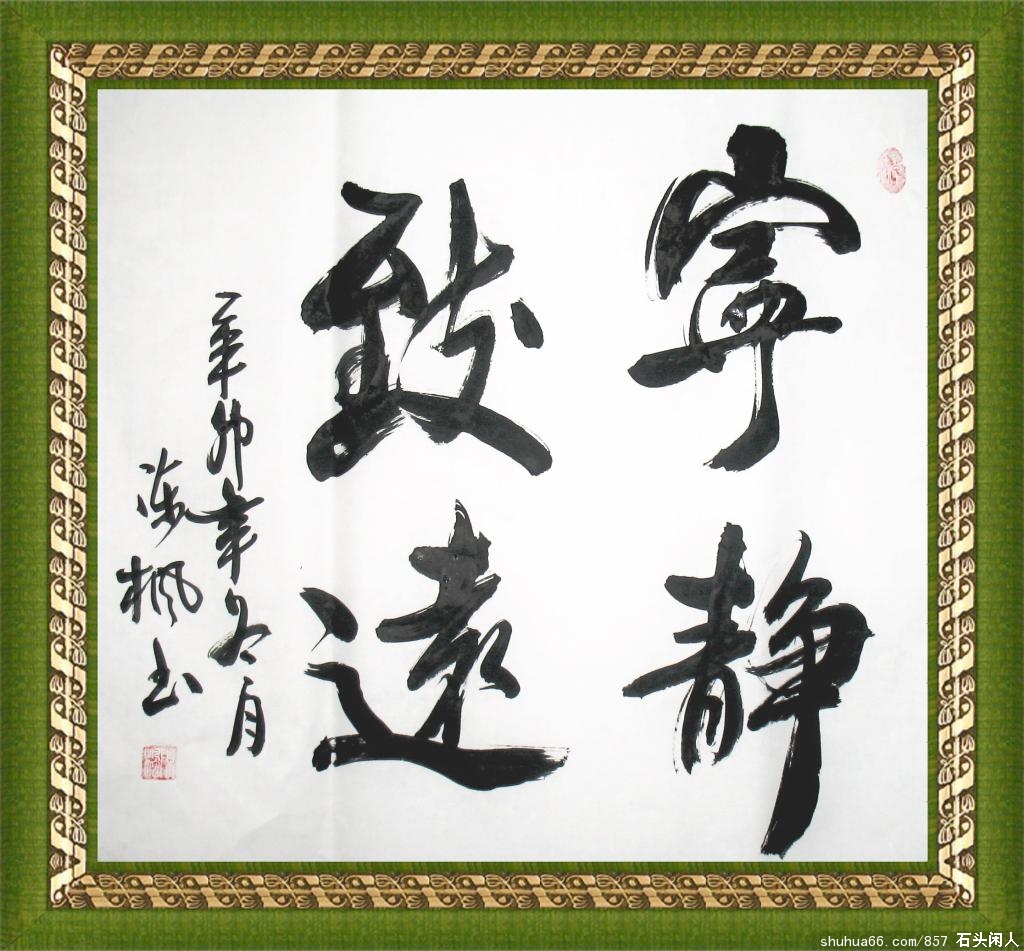 寧靜
致遠
辛卯年冬月
陈枫书
shuhua66.com/857 石头闲人